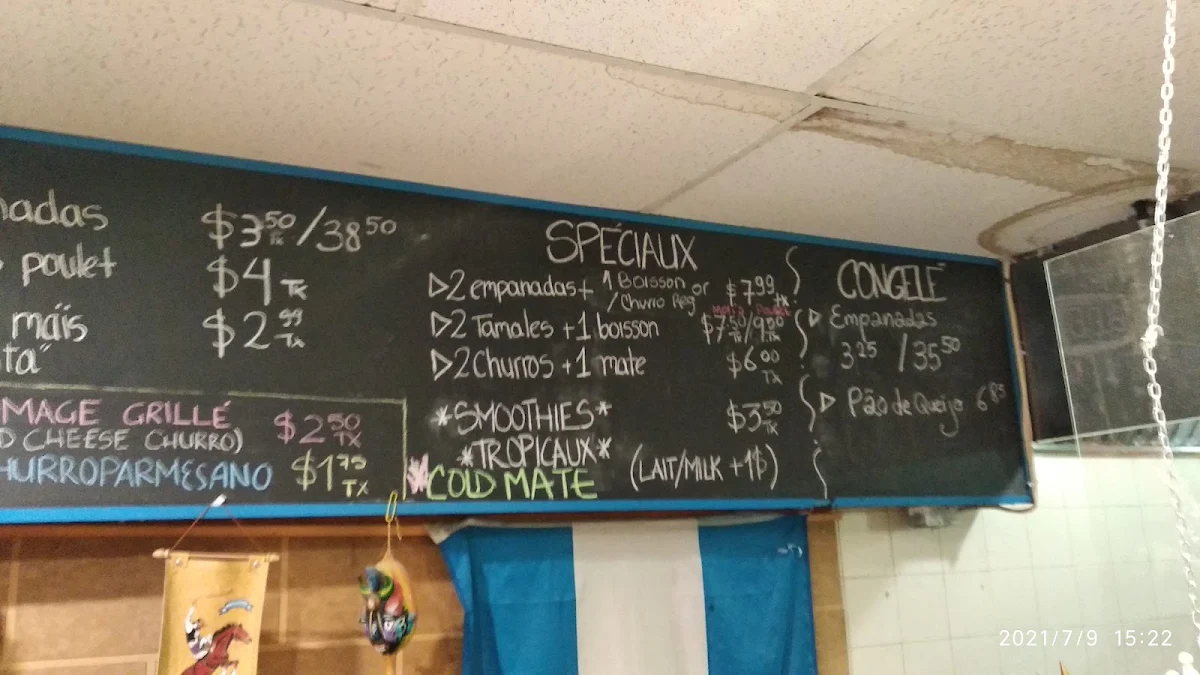 $3.50 TX / 38.50
poulet $4 TX
maïs $2.99 TX
GRILLÉ $2.50 TX
CHEESE CHURRO)
$1.75 TX
SPÉCIAUX
2 empanadas + 1 Boisson or / Churro Reg $7.99 TX
2 Tamales + 1 boisson $7.50 TX / 9.50 TX
2 Churros + 1 mate $6.00 TX
*SMOOTHIES* $3.50 TX
*TROPICAUX*
(LAIT/MILK +1$)
*COLD MATE
CONGELÉ
Empanadas
3.25 / 35.50
Pão de Queijo 6.85
2021/7/9 15:22